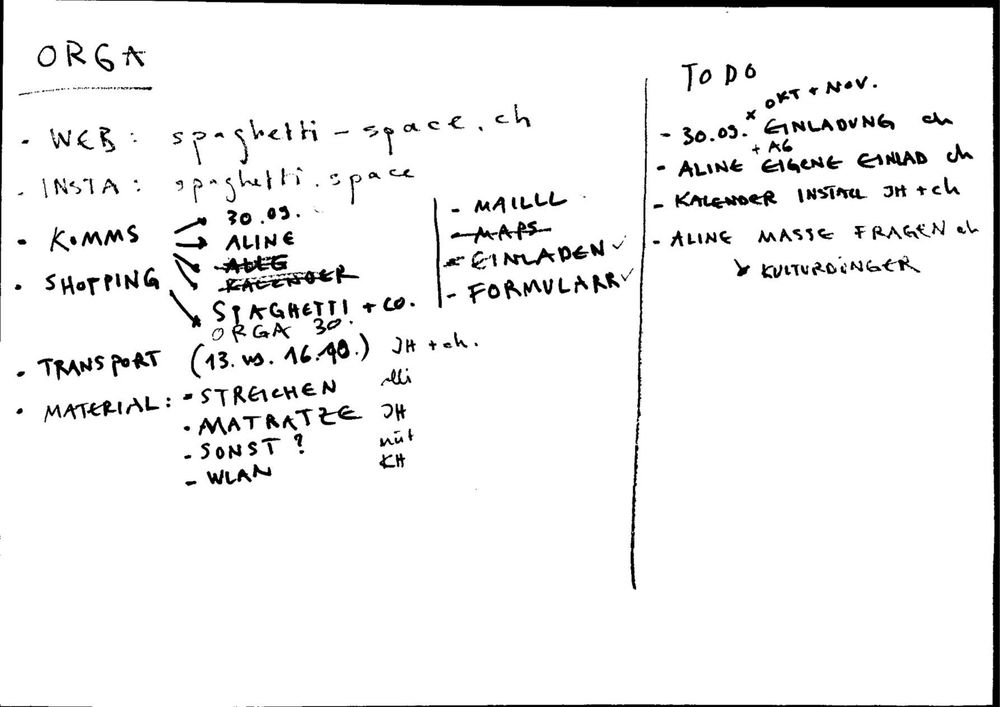 ORGA
- WEB: spaghetti-space.ch
- INSTA: spaghetti.space
• KOMMS
30.09.
ALINE
KALENDER
• SHOPPING
SPAGHETTI + CO.
ORGA 30.
- MAILLL
- MAPS
- EINLADEN ✓
- FORMULARR ✓
• TRANSPORT (13. vs. 16.10.) JH + ch.
• MATERIAL: - STREICHEN alli
- MATRATZE JH
- SONST? nüt
- WLAN KH
TO DO
OKT + NOV.
- 30.09. EINLADUNG ch
+ AG
- ALINE EIGENE EINLAD ch
- KALENDER INSTALL JH + ch
- ALINE MASSE FRAGEN ch
KULTURDINGER